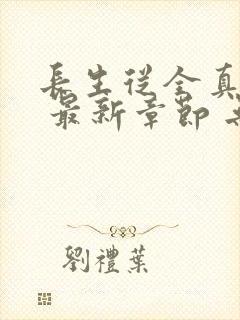 長生從全真
最新章節
劉禮葉